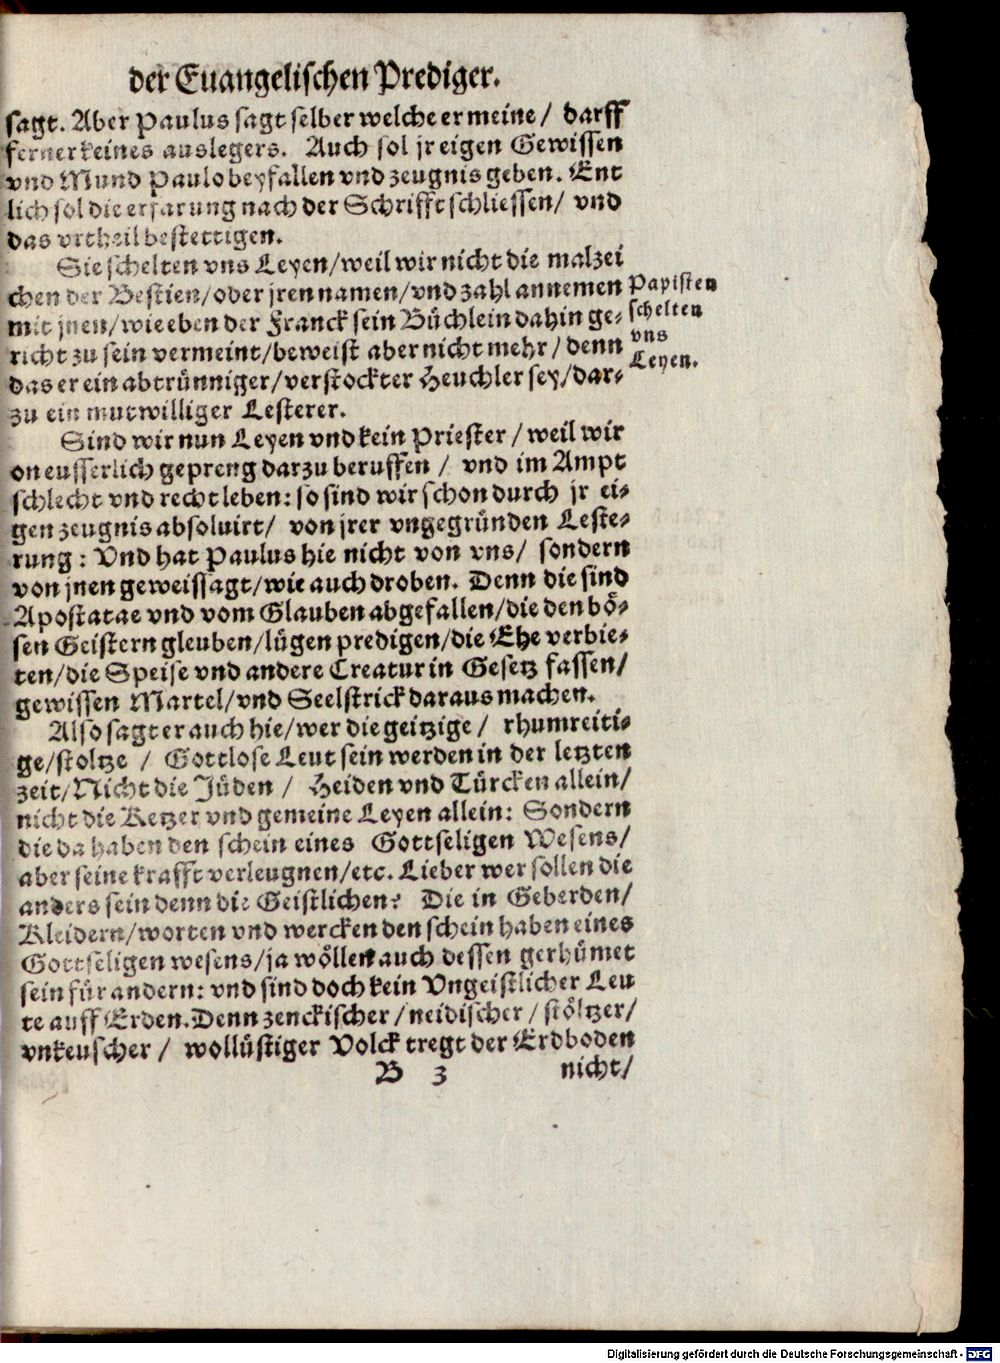 der Euangelischen Prediger.
sagt. Aber Paulus sagt selber welche er meine / darff
ferner keines auslegers. Auch sol jr eigen Gewissen
vnd Mund Paulo beyfallen vnd zeugnis geben. Ent
lich sol die erfarung nach der Schrifft schliessen / vnd
das vrtheil bestettigen.
Sie schelten vns Leyen / weil wir nicht die malzei
chen der Bestien / oder jren namen / vnd zahl annemen
mit jnen / wie eben der Franck sein Büchlein dahin ge-
richt zu sein vermeint / beweist aber nicht mehr / denn
das er ein abtrünniger / verstockter Heuchler sey / dar-
zu ein mutwilliger Lesterer.
Papisten
schelten
vns
Leyen.
Sind wir nun Leyen vnd kein Priester / weil wir
on eusserlich gepreng darzu beruffen / vnd im Ampt
schlecht vnd recht leben: so sind wir schon durch jr ei-
gen zeugnis absoluirt / von jrer vngegründen Leste-
rung: Vnd hat Paulus hie nicht von vns / sondern
von jnen geweissagt / wie auch droben. Denn die sind
Apostatae vnd vom Glauben abgefallen / die den bö-
sen Geistern gleuben / lügen predigen / die Ehe verbie-
ten / die Speise vnd andere Creatur in Gesetz fassen /
gewissen Martel / vnd Seelstrick daraus machen.
Also sagt er auch hie / wer die geitzige / rhumreiti-
ge / stoltze / Gottlose Leut sein werden in der letzten
zeit / Nicht die Jüden / Heiden vnd Türcken allein /
nicht die Ketzer vnd gemeine Leyen allein: Sondern
die da haben den schein eines Gottseligen Wesens /
aber seine krafft verleugnen / etc. Lieber wer sollen die
anders sein denn die Geistlichen? Die in Geberden /
Kleidern / worten vnd wercken den schein haben eines
Gottseligen wesens / ja wöllen auch dessen gerhümet
sein für andern: vnd sind doch kein Vngeistlicher Leu
te auff Erden. Denn zenckischer / neidischer / stöltzer /
vnkeuscher / wollüstiger Volck tregt der Erdboden
B 3 nicht /
Digitalisierung gefördert durch die Deutsche Forschungsgemeinschaft - DFG